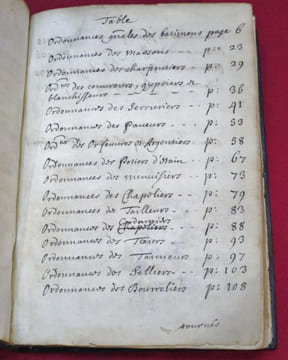 Table
Ordonnances gñales des batimens page 6
Ordonnances des massons -- p: 23
Ordonnances des charpentiers -- p: 29
Ord.ces des couvreurs, gypriers et
blanchisseurs -- -- -- p: 36
Ordonnances des Serruriers p: 41
Ordonnances des Paveurs -- p: 53
Ord.ces des Orfeuvres et Argentiers p: 58
Ordonnances des Potiers d'etain - p: 67
Ordonnances des menuisiers p: 73
Ordonnances des Chapeliers -- p: 79
Ordonnances de Tailleurs -- p: 83
Cordonniers
Ordonnances des Chapeliers -- p: 88
Ordonnances des -- p: 93
Ordonnances des Tanneurs p: 97
Ordonnances des Selliers -- p: 103
Ordonnances des Bourreliers p: 108
tournés